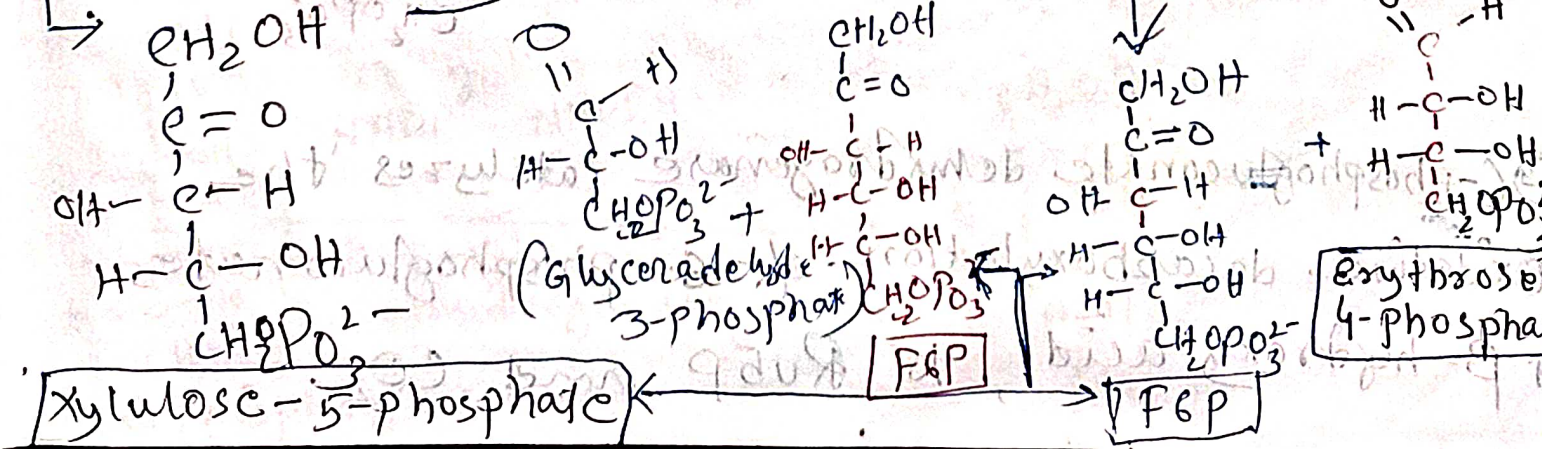 CH2OH
C=O
OH-C-H
H-C-OH
CH2OPO3 2-
Xylulose-5-phosphate
O H
C
H-C-OH
CH2OPO3 2- +
(Glyceradehyde
3-phosphat)
CH2OH
C=O
OH-C-H
H-C-OH
H-C-OH
CH2OPO3 2-
F6P
CH2OH
C=O
OH C-H
H-C-OH
H-C-OH
CH2OPO3 2-
F6P
+
O H
C
H-C-OH
H-C-OH
CH2OPO3
Erythrose
4-phospha